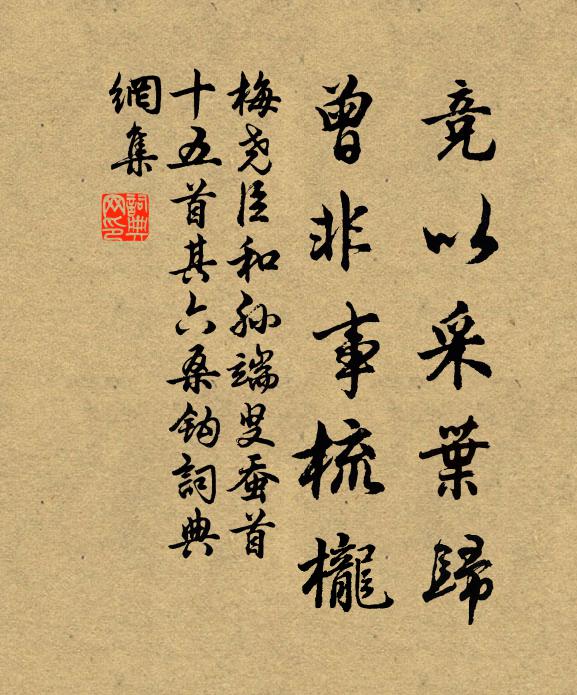 竞以采葉歸
曾非事梳櫳
梅尧臣和孙端叟蚕首
十五首其六桑钩詞典
網集
詞典
网印